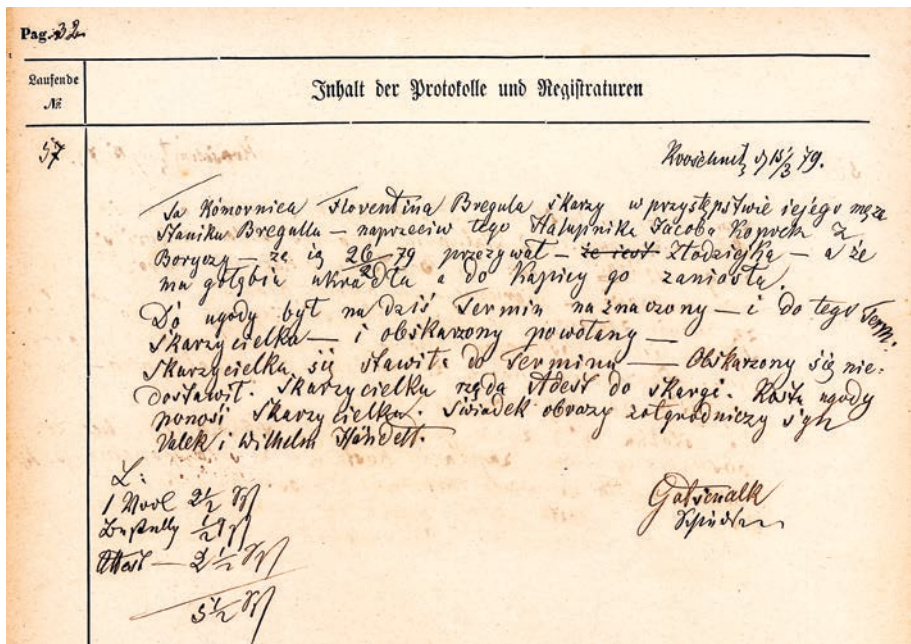 Pag. 32.
Laufende
№
Inhalt der Protokolle und Registraturen
57
15/3 79.
Ta Komornica Florentina Bregula skarzy w przystępstwie iejego męza
Staniku Bregulla — naprzeciw tego Hałupnika Jacoba Kopiech z
Boryczy — ze ią 26/2 79 przezywał — że iest Złodziejką — a że
mu gołębia ukradła a do Kapicy go zaniosła.
Do ugody był na dziś Termin naznaczony — i do tego Term.
Skarzycielka — i obskarzony powołany —
Skarzycielka się stawiła do Terminu — Obskarzony się nie-
dostawił. Skarzycielka rząda Atest do skargi. Kosta ugody
ponosi Skarzycielka. Świadek obrazy zołgrodniczy syn
Valek i Wilhelm Händell.
L:
1 2 1/2
1/2
Attest — 2 1/2
5 1/2